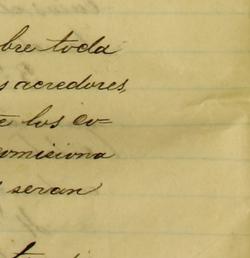 bre toda
s acredores,
é los co-
omiciona
seran